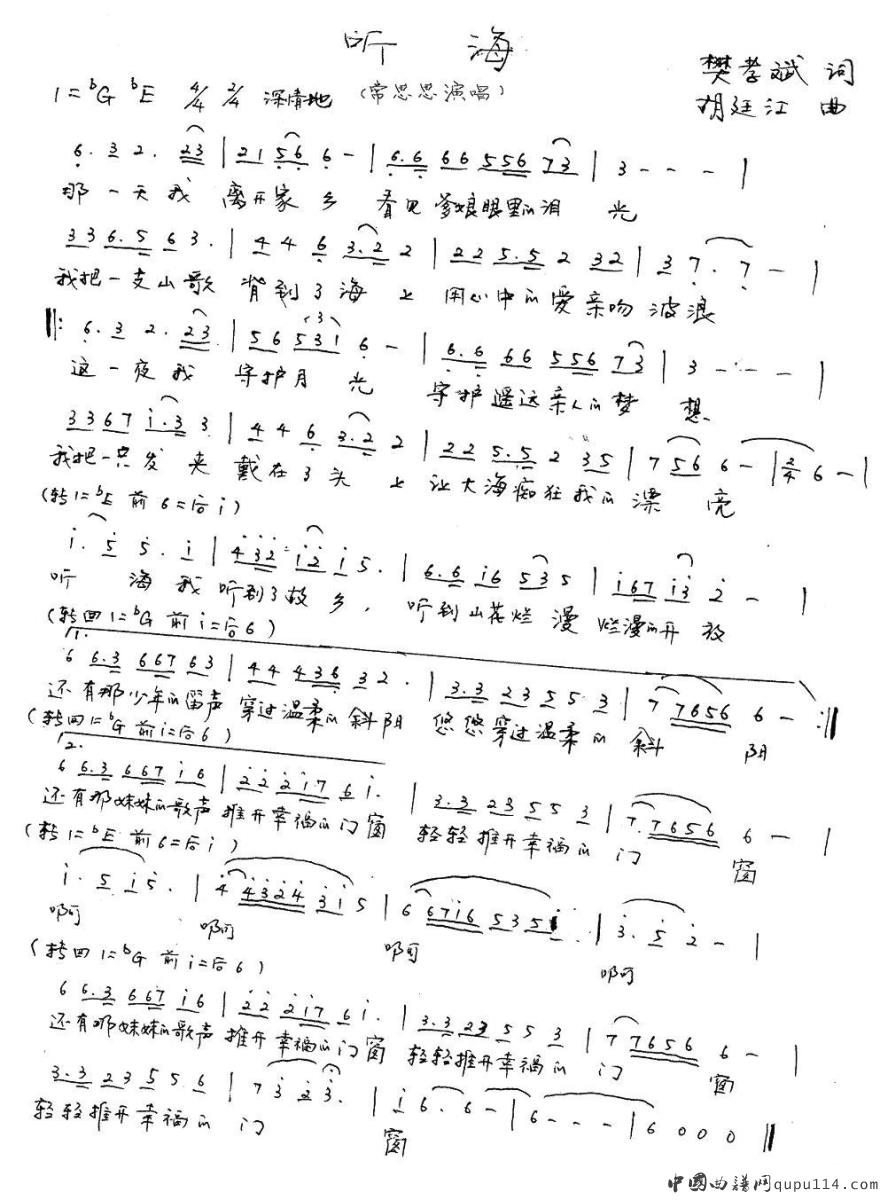 听 海
樊孝斌 词
1=ᵇG ᵇE 4/4 2/4 深情地 (常思思演唱)
胡廷江 曲
6. 3 2. 23 | 21 56 6 - | 6.6 66 556 73 | 3 - - - |
那一天我 离开家乡 看见爹娘眼里的泪 光
336.5 63. | 4 4 6 3.2 2 | 22 5.5 2 32 | 3 7. 7 - |
我把一支山歌 背到了海上 用心中的爱亲吻波浪
‖: 6. 3 2. 23 | 56 531 6 - | 6.6 66 556 73 | 3 - - - |
这一夜我 守护月光 守护遥远亲人的梦 想
3367 i.3 3. | 4 4 6 3.2 2 | 22 5.5 2 35 | 7 56 6 - | 2/4 6 - |
我把一只发夹 戴在了头上 让大海痴狂我的漂亮
(转1=ᵇE 前6=后i)
i. 5 5. i | 432 i2 i 5. | 6.6 i6 53 5 | i67 i3 2 - |
听 海我 听到了故乡, 听到山花烂漫 烂漫的开放
(转回1=ᵇG 前i=后6)
1.
6 6.3 667 63 | 44 436 32. | 3.3 23 5 5 3 | 7 7656 6 - :‖
还有那少年的笛声 穿过温柔的斜阳 悠悠穿过温柔的斜 阳
(转回1=ᵇG 前i=后6)
2.
6 6.3 667 i6 | 22 2i7 6i. | 3.3 23 5 5 3 | 7. 7656 6 - |
还有那妹妹的歌声 推开幸福的门窗 轻轻推开幸福的门 窗
(转1=ᵇE 前6=后i)
i. 5 i5. | 4 4324 3i 5 | 6 67i6 535i | 3. 5 2 - |
啊 啊 啊 啊
(转回1=ᵇG 前i=后6)
6 6.3 667 i6 | 22 2i7 6i. | 3.3 23 5 5 3 | 7 7656 6 - |
还有那妹妹的歌声 推开幸福的门窗 轻轻推开幸福的 门 窗
3.3 23 5 5 6 | 7 3 2 3. | i 6. 6 - | 6 - - - | 6 0 0 0 ‖
轻轻推开幸福的 门 窗
中國曲譜网qupu114.com